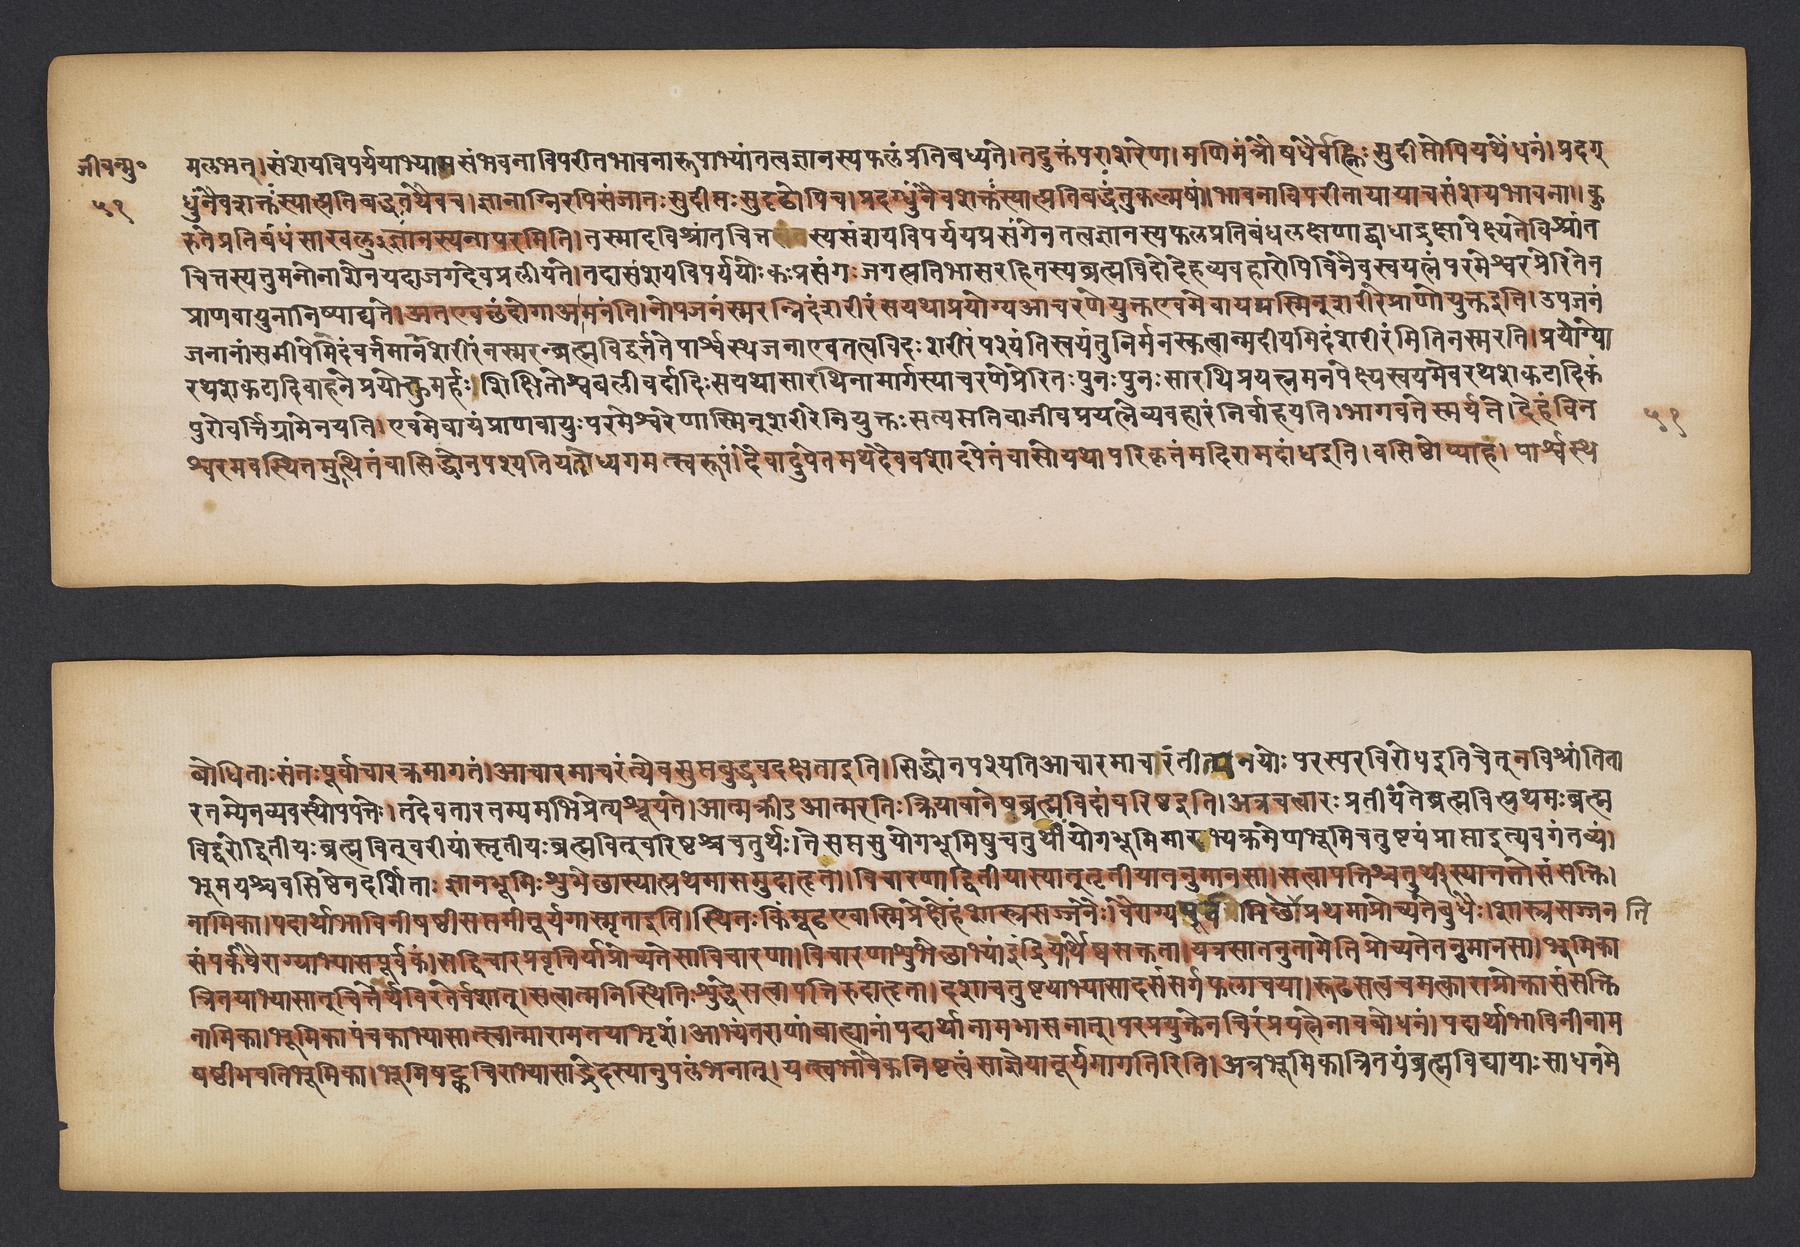 जीवन्मु॰
५१
मलभत्।संशयविपर्ययाभ्यामसंभवनाविपरीतभावनारूपाभ्यांतत्वज्ञानस्यफलंप्रतिबध्यते।तदुक्तंपराशरेण।मणिमंत्रौषधैर्वह्निःसुदीप्तोपियथेंधनं।प्रदग्
धुंनैवशक्तंस्यात्प्रतिबद्धंतथैवच।ज्ञानाग्निरपिसंजातःसुदीप्तःसुदृढोपिच।प्रदग्धुंनैवशक्तंस्यात्प्रतिबद्धंतुकल्मषं॥भावनाविपरीतायायाचसंशयभावना॥कु
रुतेप्रतिबंधंसाखलुज्ञानस्यनापरमिति।तस्मादविश्रांतचित्तस्यसंशयविपर्ययप्रसंगेनतत्वज्ञानस्यफलप्रतिबंधलक्षणाद्बाधाद्रक्षापेक्ष्यतेविश्रांत
चित्तस्यतुमनोनाशेनयदाजगदेवप्रलीयते।तदासंशयविपर्ययोःकःप्रसंगःजगत्प्रतिभासरहितस्यब्रह्मविदोदेहव्यवहारोपिविनैवस्वयत्नंपरमेश्वरप्रेरितेन
प्राणवायुनानिष्पाद्यते।अतएवछंदोगाआमनंति।नोपजनंस्मरन्निदंशरीरंसयथाप्रयोग्यआचरणेयुक्तएवमेवायमस्मिन्शरीरेप्राणोयुक्तइति।उपजनं
जनानांसमीपेमिदंवर्त्तमानंशरीरंनस्मरन्ब्रह्मविद्वर्त्ततेपार्श्वस्थजनाएवतत्वविदःशरीरंपश्यंतिस्वयंतुनिर्मनस्कत्वान्मदीयमिदंशरीरंमितिनस्मरति।प्रयोग्यो
रथशकटादिवाहनेप्रयोक्तुमर्हः।शिक्षितोश्वबलीवर्दादिःसयथासारथिनामार्गस्याचरणेप्रेरितःपुनःपुनःसारथिप्रयत्नमनपेक्ष्यस्वयमेवरथशकटादिकं
पुरोवर्त्तिग्रामेनयति।एवमेवायंप्राणवायुःपरमेश्वरेणास्मिन्शरीरेनियुक्तःसत्यसतिवाजीवप्रयत्नेव्यवहारंनिर्वाहयति।भागवतेस्मर्यते।देहंविन
५१
श्वरमवस्थितमुत्थितंवासिद्धोनपश्यतियतोध्यगमत्स्वरूपं।दैवादुपेतमथदैववशादपेतंवासोयथापरिकृतंमदिरामदांधइति।वसिष्ठोप्याह।पार्श्वस्थ
बोधिताःसंतःपूर्वाचारक्रमागतं।आचारमाचरंत्येवसुप्तबुद्धवदक्षताइति।सिद्धोनपश्यतिआचारमाचरंतीत्यनयोःपरस्परविरोधइतिचेत्नविश्रांतिता
रतम्येनव्यवस्थोपपत्तेः।तदेवतारतम्यमभिप्रेत्यश्रूयते।आत्मक्रीडआत्मरतिःक्रियावानेषब्रह्मविदांवरिष्ठइति।अत्रचत्वारःप्रतीयंतेब्रह्मवित्प्रथमःब्रह्म
विद्वरोद्वितीयःब्रह्मवित्वरीयांस्तृतीयःब्रह्मवित्वरिष्ठश्चचतुर्थः।तेसप्तसुयोगभूमिषुचतुर्थींयोगभूमिमारभ्यक्रमेणभूमिचतुष्टयंप्राप्ताइत्यवगंतव्यं।
भूमयश्चवसिष्ठेनदर्शिताःज्ञानभूमिःशुभेछास्यात्प्रथमासमुदाहृता।विचारणाद्वितीयास्यात्तृतीयातनुमानसा।सत्वापत्तिश्चतुर्थीस्यात्ततोसंसक्ति।
नामिका।पदार्थाभाविनीषष्ठीसप्तमीतूर्यगास्मृताइति।स्थितःकिंमूढएवास्मिप्रेक्षेहंशास्त्रसज्जनेः।वैराग्यपूर्वमिछेप्रथमाप्रोच्यतेबुधैः।शास्त्रसज्जन ति
संपर्कवैराग्याभ्यासपूर्वकं।सद्विचारप्रवृत्तिर्याप्रोच्यतेसाविचारणा।विचारणाशुभेछाभ्यांइंद्रियार्थेष्वसक्तता।यत्रसातनुतामेतिप्रोच्यतेतनुमानसा।भूमिका
त्रितयाभ्यासात्चित्तेर्थविरतेर्वशात्।सत्वात्मनिस्थितिःशुद्धेसत्वापत्तिरुदाहृता।दशाचतुष्टयाभ्यासादसंसर्गफलाचया।रूढसत्वचमत्काराप्रोक्तासंसक्ति
नामिका।भूमिकापंचकाभ्यासात्स्वात्मारामतयाभृशं।आभ्यंतराणांबाह्यानांपदार्थानामभासनात्।परप्रयुक्तेनचिरंप्रयत्नेनावबोधनं।पदार्थाभाविनीनाम
षष्ठीभवतिभूमिका।भूमिषट्कचिराभ्यासाद्भेदस्यानुपलंभनात्।यत्स्वभावैकनिष्टत्वंसाज्ञेयातूर्यगागतिरिति।अत्रभूमिकात्रितयंब्रह्मविद्यायाःसाधनमे